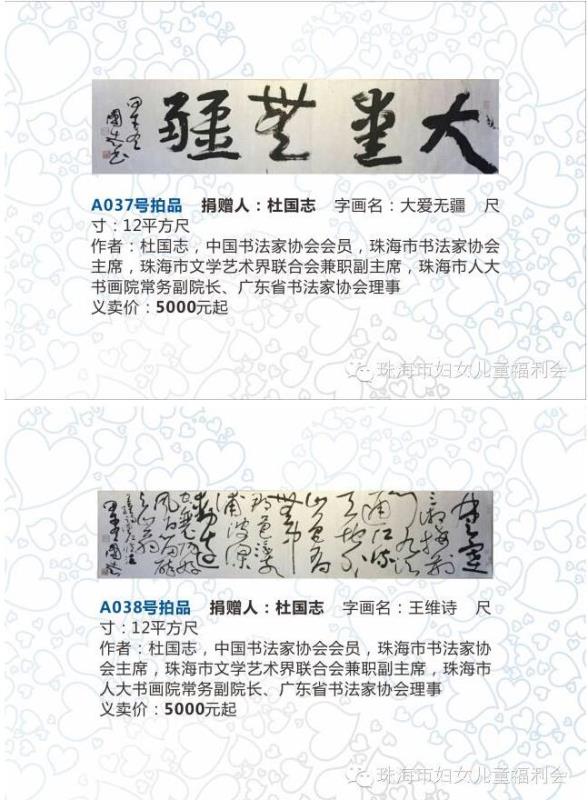 大愛無疆
A037号拍品 捐赠人：杜国志 字画名：大爱无疆 尺
寸：12平方尺
作者：杜国志，中国书法家协会会员，珠海市书法家协会
主席，珠海市文学艺术界联合会兼职副主席，珠海市人大
书画院常务副院长、广东省书法家协会理事
义卖价：5000元起
珠海市妇女儿童福利会
楚塞
三湘接荊
門九派
通江流
天地外
山色有
無中
郡邑浮前
浦波瀾
動遠
空襄陽好
風日留醉
與山翁
A038号拍品 捐赠人：杜国志 字画名：王维诗 尺
寸：12平方尺
作者：杜国志，中国书法家协会会员，珠海市书法家协
会主席，珠海市文学艺术界联合会兼职副主席，珠海市
人大书画院常务副院长、广东省书法家协会理事
义卖价：5000元起
珠海市妇女儿童福利会